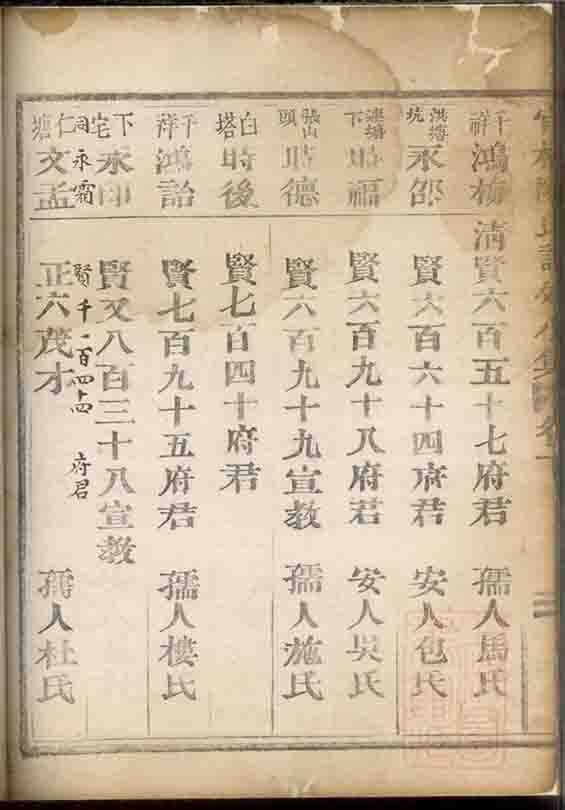 千祥 鴻楊 清賢六百五十七府君 孺人馬氏
洪塘坑 永邵 賢六百六十四府君 安人包氏
蓮塘下 時福 賢六百九十八府君 安人吳氏
張山頭 時德 賢六百九十九宣教 孺人施氏
白塔 時後 賢七百四十府君
千祥 鴻詒 賢七百九十五府君 孺人樓氏
下宅 永印 賢又八百三十八宣教
同 永霜 賢千一百四十四 府君
仁塘 文孟 正六茂才 孺人杜氏